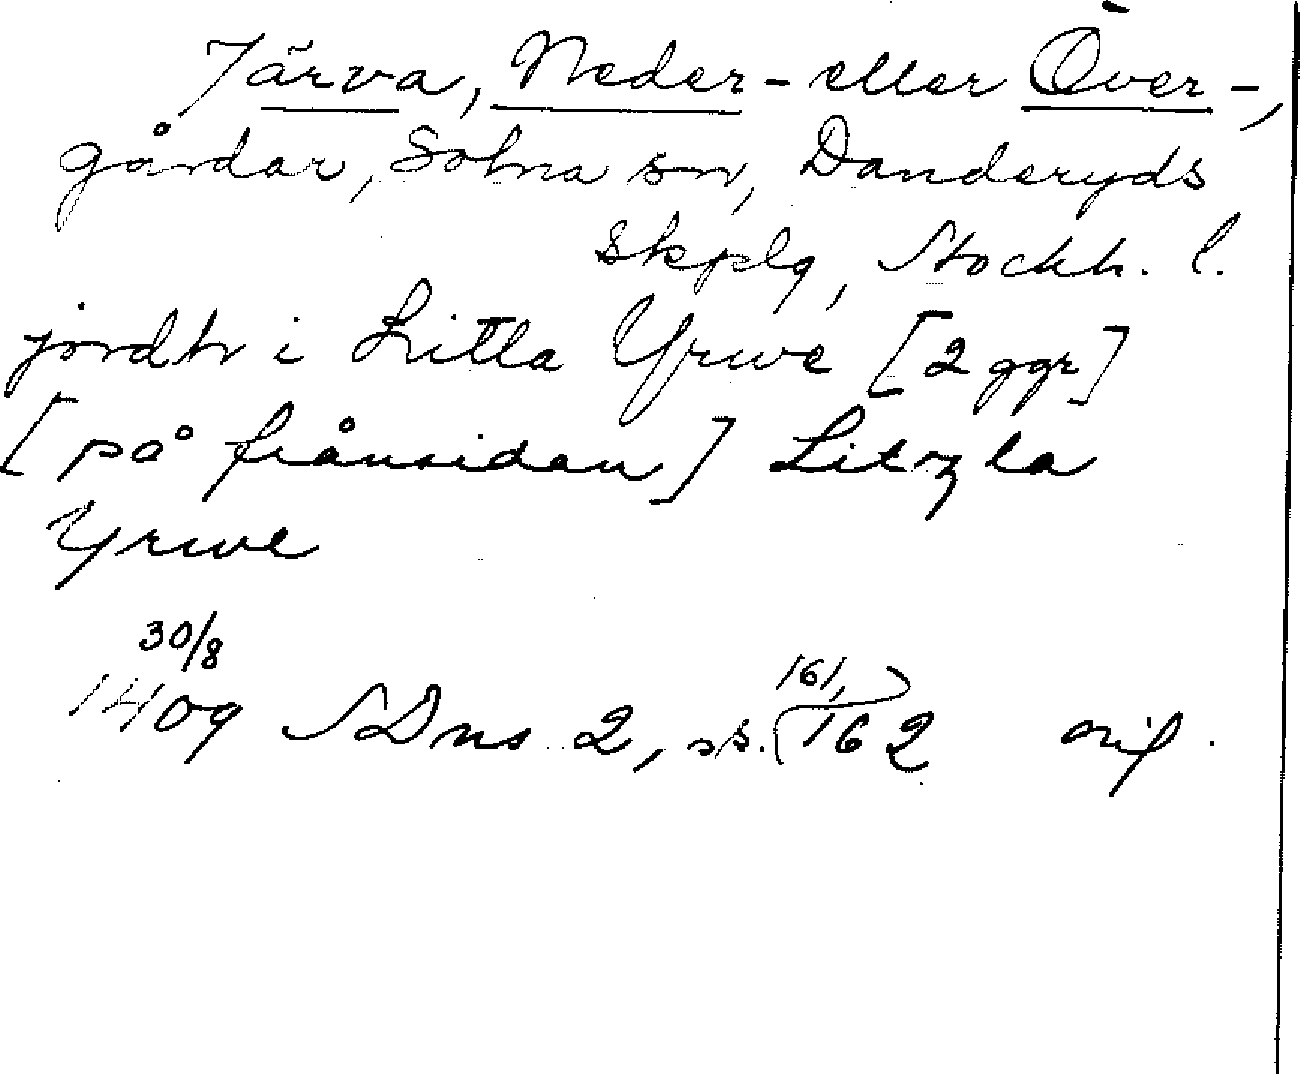 Järva, Neder- eller Över-,
gårdar, Solna sn, Danderyds
skplg, Stockh. l.
jordh i Litla Yrwe [2 ggr]
[på frånsidan] Litzla
Yrwe
30/8
1409 SDns 2, ss. 161, 162 orig.